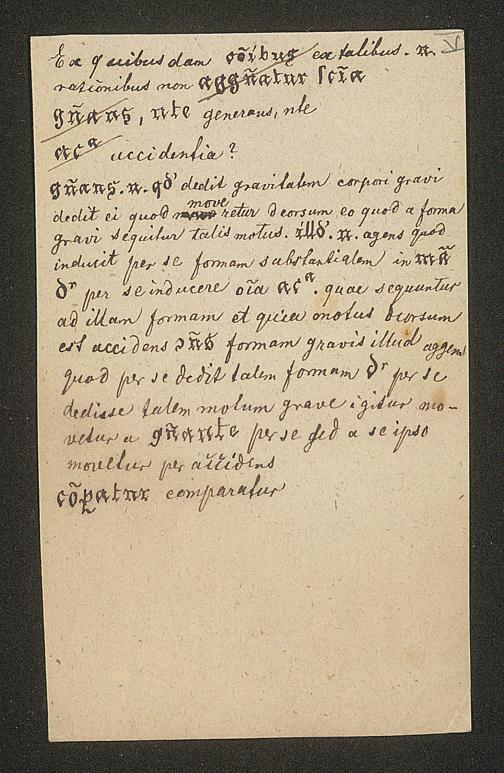 V
Ex quibusdam cōibus ex talibus. n.
rationibus non aggñatur scīa
gñans, nte generans, nte
acᵃ accidentia?
gñans. n. qd' dedit gravitatem corpori gravi
move
dedit ei quod retur deorsum eo quod a forma
gravi sequitur talis motus. illd'. n. agens quod
inducit per se formam substantialem in mā
dʳ per se inducere oīa acᵃ. quae sequuntur
ad illam formam et quia motus deorsum
est accidens ɔñs formam gravis illud aggens
quod per se dedit talem formam dʳ per se
dedisse talem motum grave igitur mo-
vetur a gñante per se sed a se ipso
movetur per accidens
cōpatur comparatur